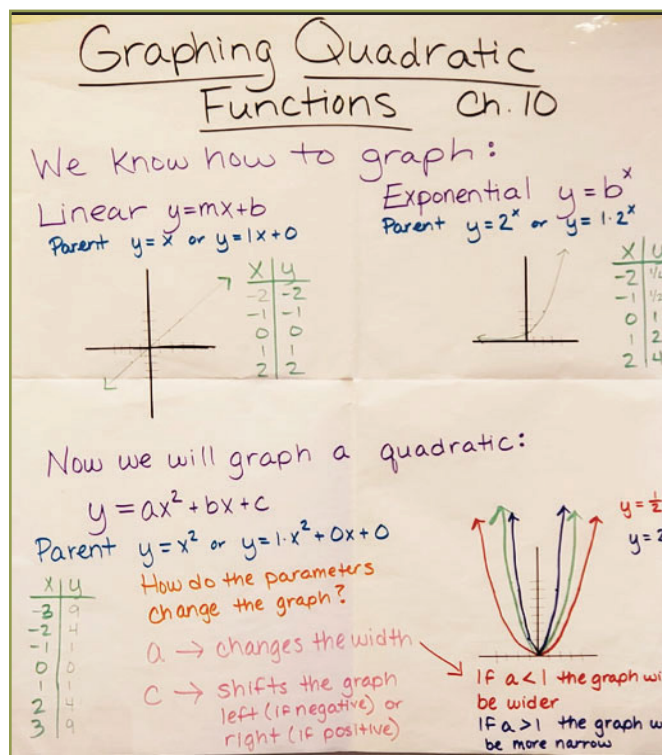 Graphing Quadratic
Functions Ch. 10
We know how to graph:
Linear y=mx+b
Parent y=x or y=1x+0
x y
-2 -2
-1 -1
0 0
1 1
2 2
Exponential y=b^x
Parent y=2^x or y=1·2^x
x y
-2 1/4
-1 1/2
0 1
1 2
2 4
Now we will graph a quadratic:
y=ax²+bx+c
Parent y=x² or y=1·x²+0x+0
x y
-3 9
-2 4
-1 1
0 0
1 1
2 4
3 9
How do the parameters
change the graph?
a → changes the width
c → shifts the graph
left (if negative) or
right (if positive)
y=1/2
y=2
If a<1 the graph
be wider
If a>1 the graph
be more narrow